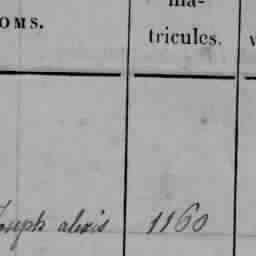 OMS.
ma-
tricules.
Joseph alexis 1160